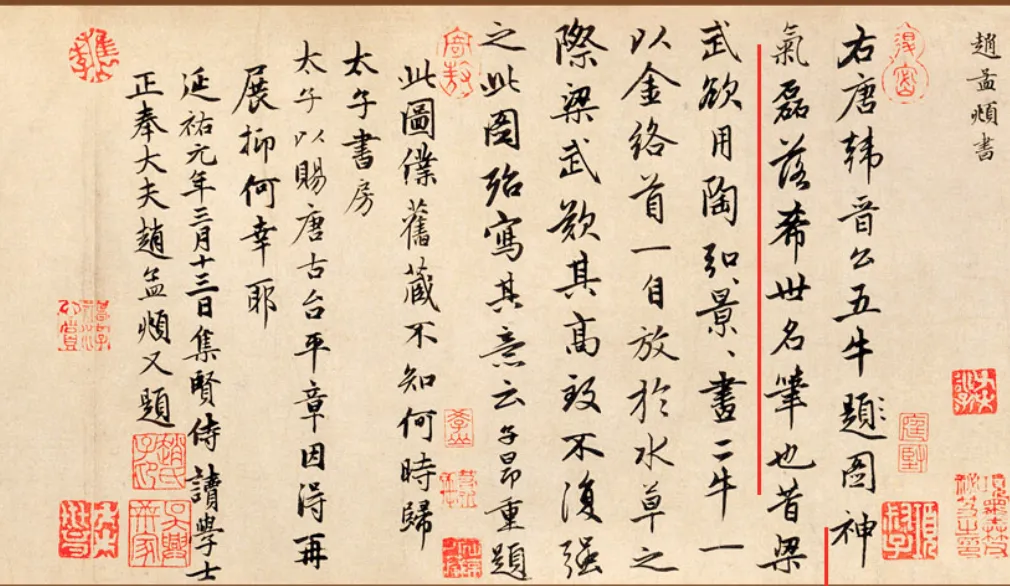 趙孟頫書
右唐韓晉公五牛題圖神
氣磊落希世名筆也昔梁
武欲用陶弘景、畫二牛一
以金絡首一自放於水草之
際梁武歎其高致不復强
之此圖殆寫其意云子昂重題
此圖僕舊藏不知何時歸
太子書房
太子以賜唐古台平章因得再
展抑何幸耶
延祐元年三月十三日集賢侍讀學士
正奉大夫趙孟頫又題